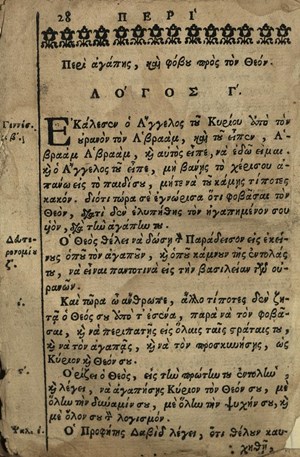 28 ΠΕΡΙ
Περὶ ἀγάπης, καὶ φόβου πρὸς τὸν Θεόν.
ΛΟΓΟΣ Γ΄.
Γενέσ.
ΕΚάλεσεν ὁ Ἄγγελος τοῦ Κυρίου ἀπὸ τὸν
οὐρανὸν τὸν Ἀβραὰμ, καὶ τοῦ εἶπεν, Ἀ-
βραὰμ Ἀβραὰμ, καὶ αὐτὸς εἶπε, νὰ ἐδὼ εἶμαι.
καὶ ὁ Ἄγγελος τοῦ εἶπε, μὴ βάνῃς τὸ χέρι σου ἀ-
πάνω εἰς τὸ παιδίον, μήτε νὰ τοῦ κάμῃς τίποτες
κακόν. διότι τώρα σὲ ἐγνώρισα ὅτι φοβᾶσαι τὸν
Θεὸν, διατὶ δὲν ἐλυπήθης τὸν ἠγαπημένον σου
υἱὸν, διὰ τὴν ἀγάπην του.
Δευτε-
ρονομίου
Ὁ Θεὸς θέλει νὰ δώσῃ τὸν Παράδεισον εἰς ἐκεί-
νους ὁποῦ τὸν ἀγαποῦν, καὶ ὁποῦ κάμνουν τῆς ἐντολάς
του, νὰ εἶναι παντοτινὰ εἰς τὴν βασιλείαν τῶν οὐ-
ρανῶν.
Καὶ τώρα ὦ ἄνθρωπε, ἄλλο τίποτες δὲν ζη-
τᾷ ὁ Θεός σου ἀπὸ τ' ἐσένα, παρὰ νὰ τὸν φοβᾶ-
σαι, καὶ νὰ περιπατῇς εἰς ὅλαις ταῖς στράταις του,
καὶ νὰ τὸν ἀγαπᾷς, καὶ νὰ τὸν προσκυνήσῃς, ὡς
Κύριον καὶ Θεόν σου.
Ὁρίζει ὁ Θεὸς, εἰς τὴν πρώτην του ἐντολὴν,
καὶ λέγει, νὰ ἀγαπήσῃς Κύριον τὸν Θεόν σου, μὲ
ὅλην τὴν δύναμίν σου, μὲ ὅλην τὴν ψυχήν σου, καὶ
μὲ ὅλον σου τὸν λογισμόν.
Ψαλ. έ.
Ὁ Προφήτης Δαβὶδ λέγει, ὅτι θέλουν καυ-
χηθῆ,